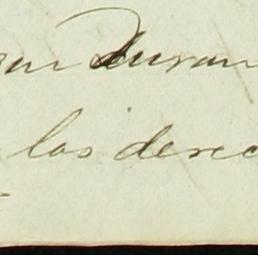 Duran
los derec